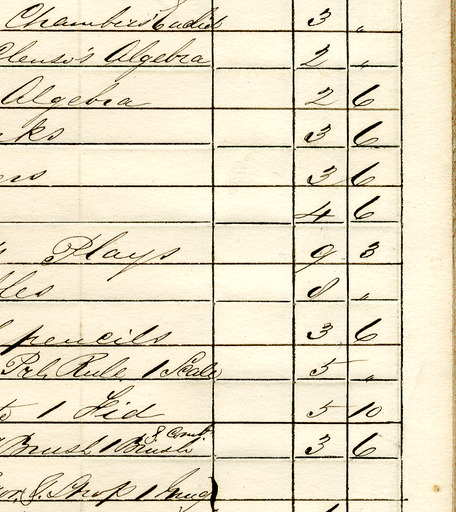 Chambers's Euclid 3 "
Clenso's Algebra 2 "
Algebra 2 6
ks 3 6
ers 3 6
4 6
's Plays 9 3
les 8 "
pencils 3 6
Prl. Rule 1 Scale 5 "
1 Lid 5 10
Brush 1 Brush & Comb 3 6
Strop 1 mug